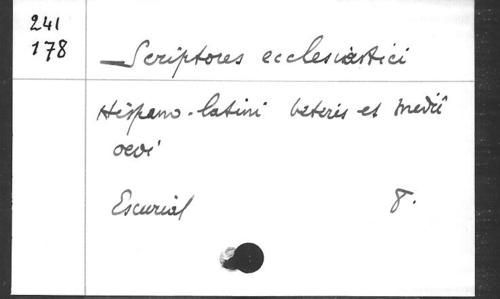 241
178
Scriptores ecclesiastici
Hispano-latini veteris et medii
aevi
Escurial 8.